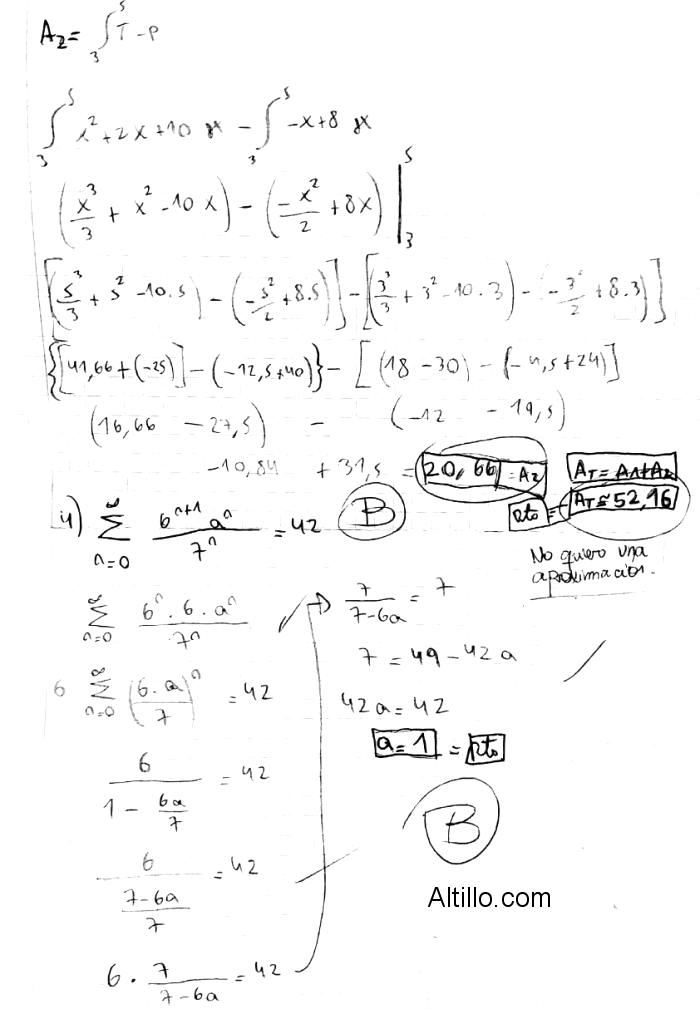 A₂ = ∫₃⁵ T - P
∫₃⁵ x² + 2x + 10 dx - ∫₃⁵ -x + 8 dx
(x³/3 + x² - 10x) - (-x²/2 + 8x) |₃⁵
[(5³/3 + 5² - 10.5) - (-5²/2 + 8.5)] - [(3³/3 + 3² - 10.3) - -3²/2 + 8.3)]
{[41,66 + (-25)] - (-12,5 + 40)} - [(18 - 30) - (-4,5 + 24)]
(16,66 - 27,5) - (-12 - 19,5)
-10,84 + 31,5 = 20,66 = A₂
A_T = A₁ + A₂
Rto = A_T ≅ 52,16
No quiero una
aproximación.
4) ∑ₙ₌₀^∞ 6ⁿ⁺¹ aⁿ / 7ⁿ = 42 B
∑ₙ₌₀^∞ 6ⁿ . 6 . aⁿ / 7ⁿ
6 ∑ₙ₌₀^∞ (6 . a / 7)ⁿ = 42
6 / (1 - 6a/7) = 42
6 / ((7 - 6a)/7) = 42
6 . 7 / (7 - 6a) = 42
→ 7 / (7 - 6a) = 7
7 = 49 - 42a
42a = 42
a = 1 = Rto
B
Altillo.com